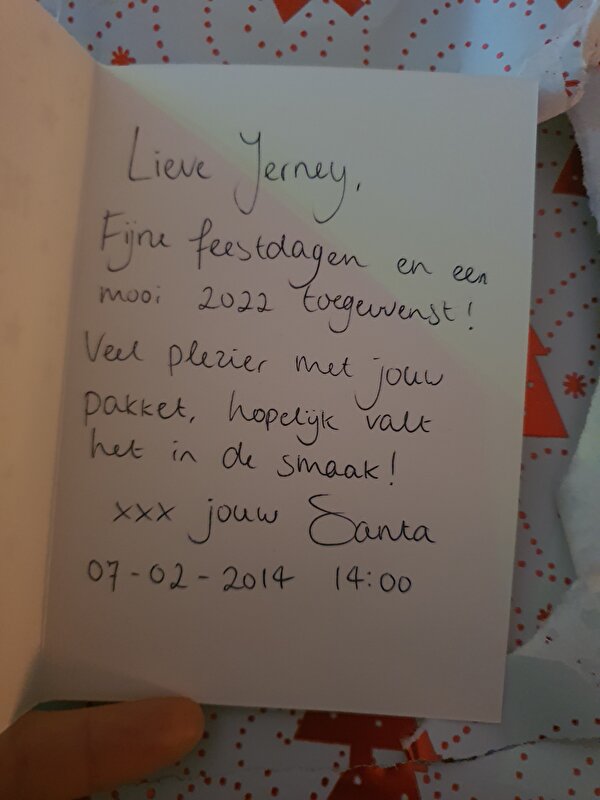 Lieve Jerney,
Fijne feestdagen en een
mooi 2022 toegewenst!
Veel plezier met jouw
pakket, hopelijk valt
het in de smaak!
xxx jouw Santa
07-02-2014 14:00